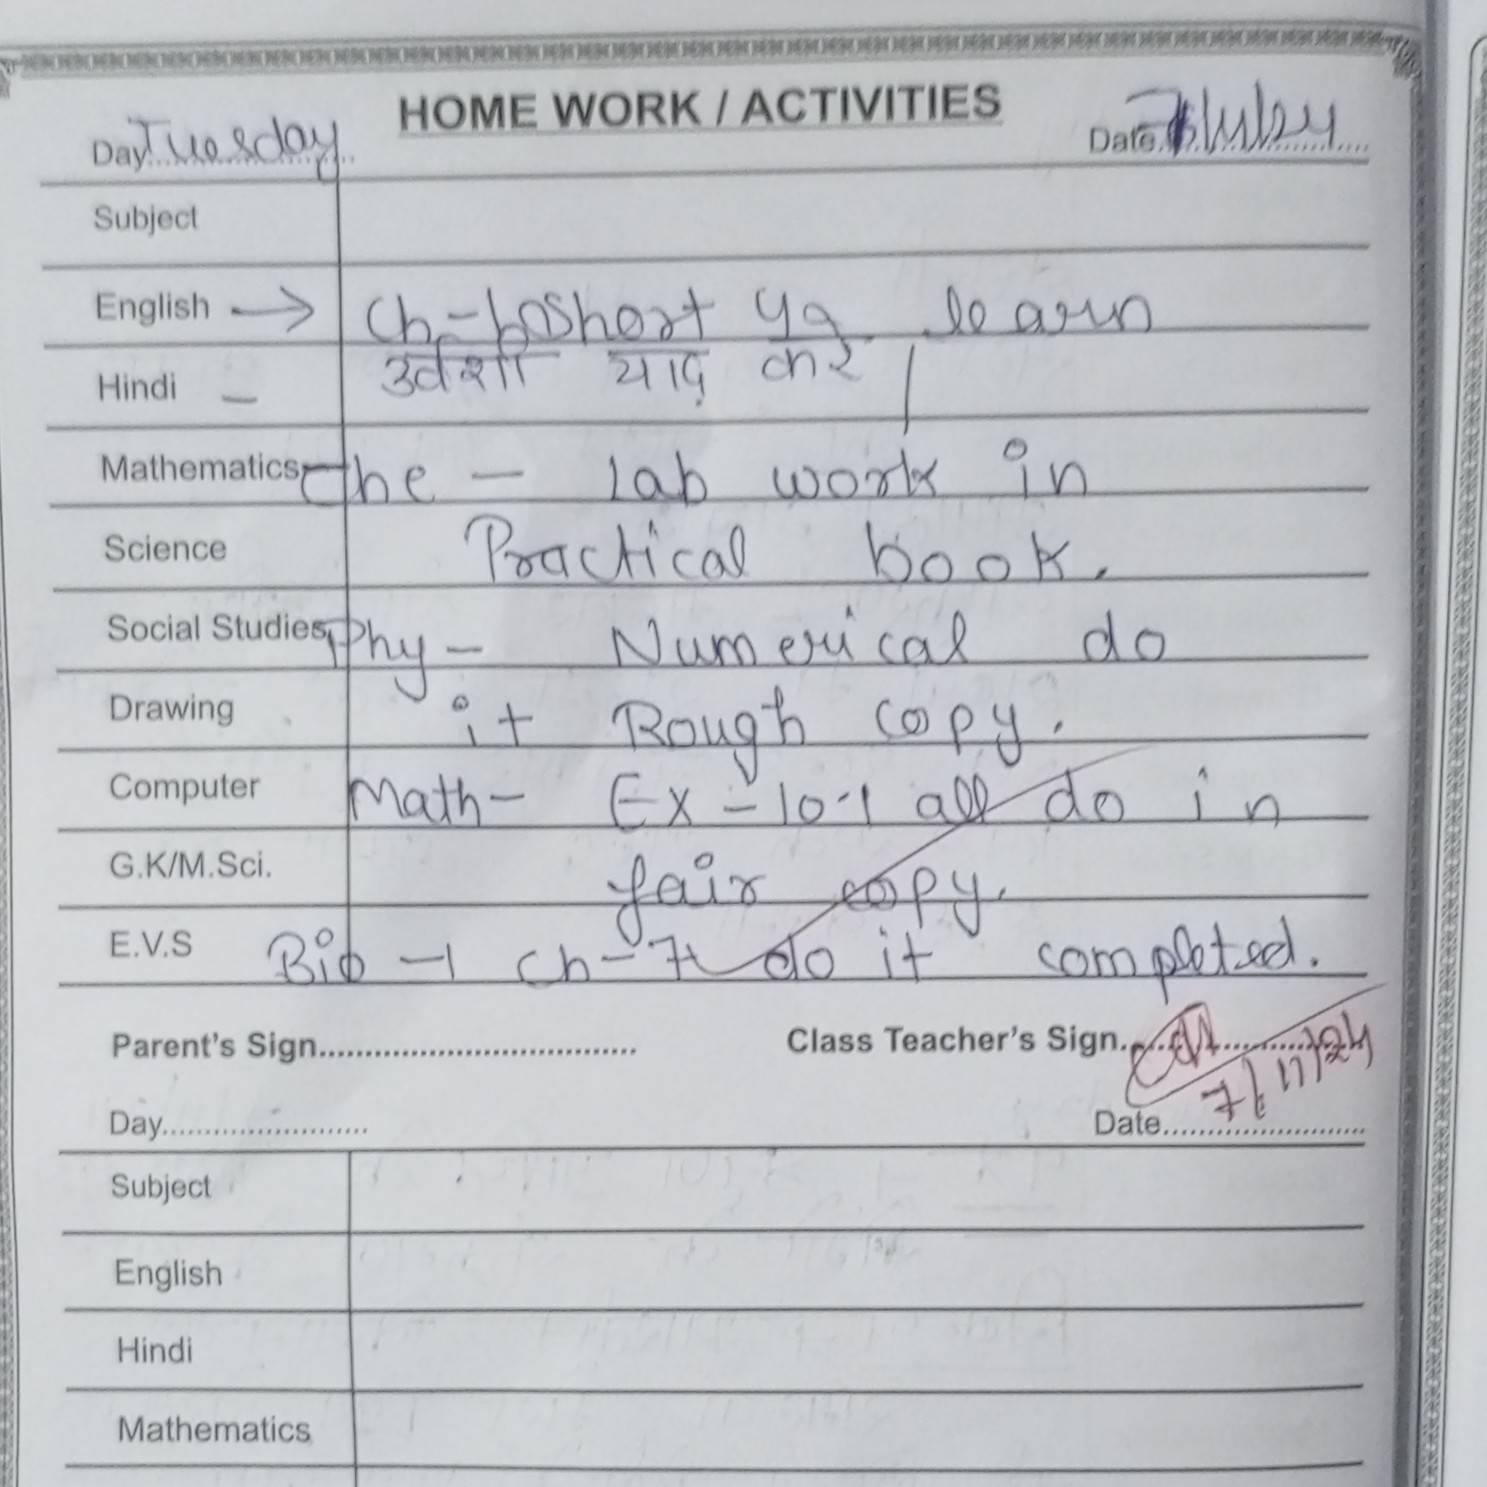 HOME WORK / ACTIVITIES
Day Tuesday Date 7/11/24
Subject
English → Ch- Short learn
Hindi - याद करे |
Mathematics Che - Lab work in
Science Practical book.
Social Studies Phy - Numerical do
Drawing it Rough copy.
Computer Math - Ex - 10.1 all do in
G.K/M.Sci. fair copy.
E.V.S Bio - 1 ch - 7 do it completed.
Parent's Sign........ Class Teacher's Sign........
7/11/24
Day........ Date........
Subject
English
Hindi
Mathematics